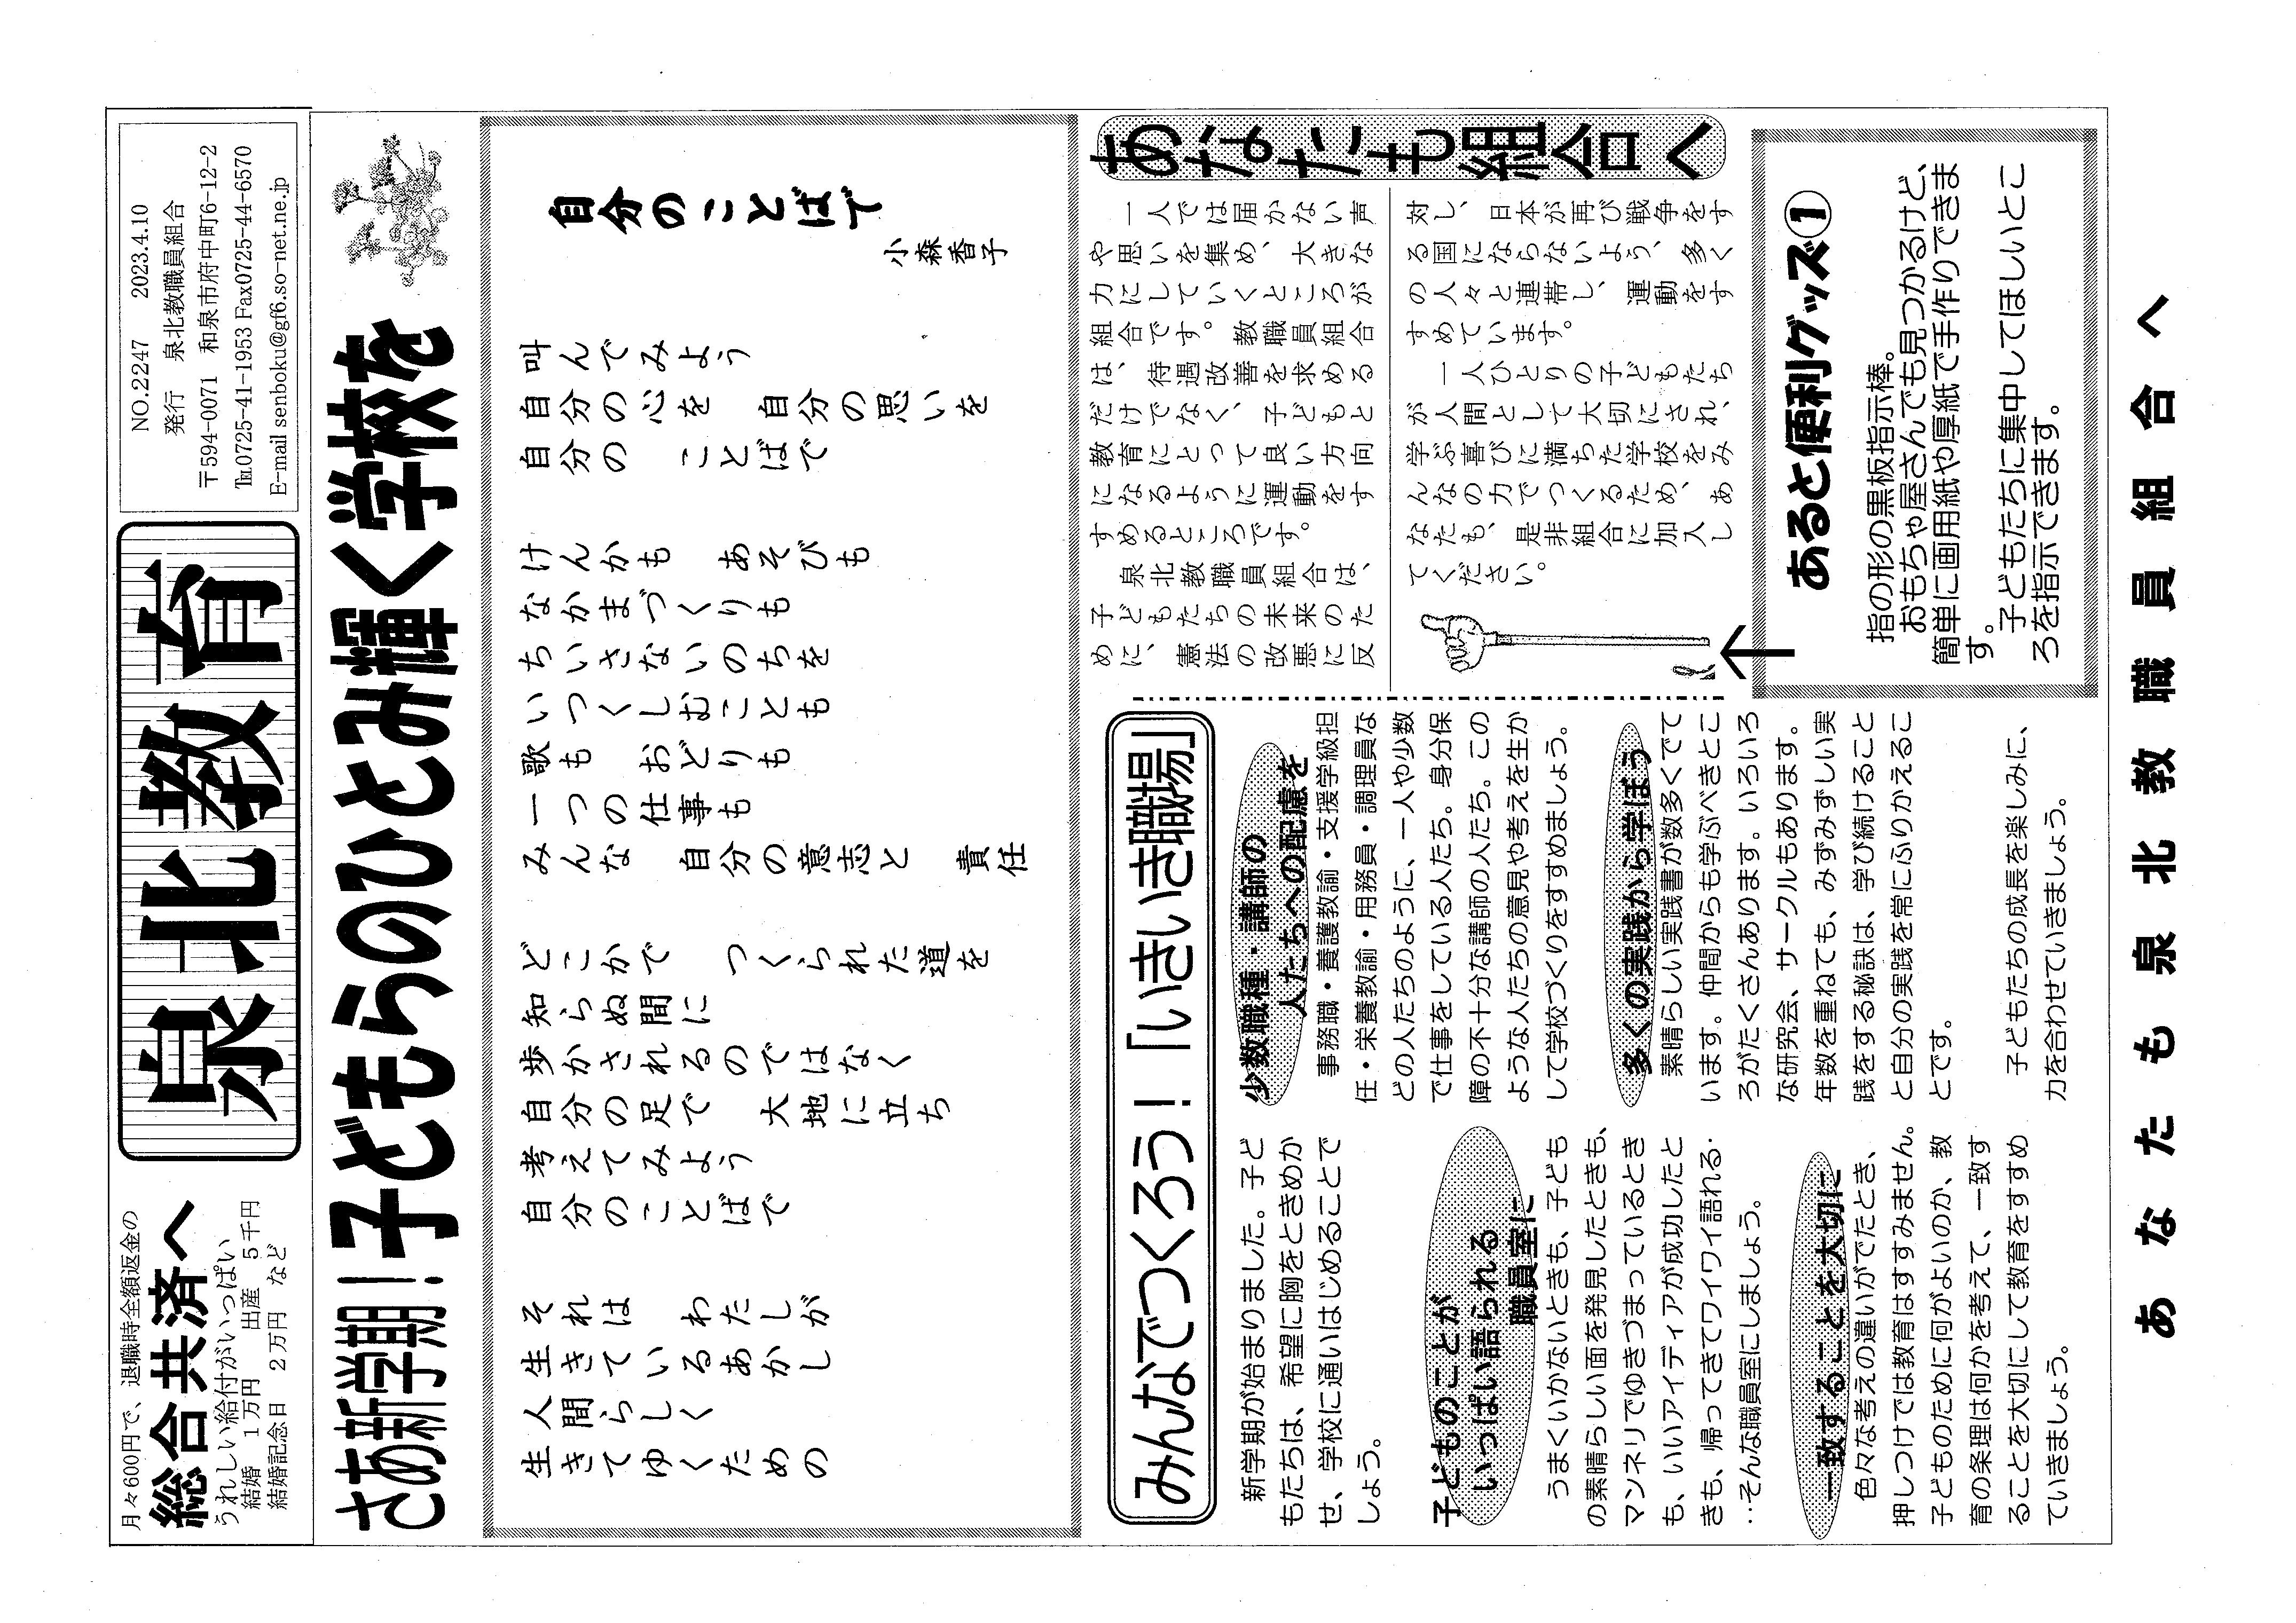 月々600円で、退職時全額返金の
総合共済へ
うれしい給付がいっぱい
結婚 1万円 出産 5千円
結婚記念日 2万円 など
泉北教育
NO.2247 2023.4.10
発行 泉北教職員組合
〒594-0071 和泉市府中町6-12-2
℡0725-41-1953 Fax0725-44-6570
E-mail senboku@gf6.so-net.ne.jp
さあ新学期!子どもらのひとみ輝く学校を
自分のことばで
小森香子
叫んでみよう
自分の心を 自分の思いを
自分の ことばで
けんかも あそびも
なかまづくりも
ちいさないのちを
いつくしむことも
歌も おどりも
一つの仕事も
みんな 自分の意志と 責任
どこかで つくられた道を
知らぬ間に
歩かされるのではなく
自分の足で 大地に立ち
考えてみよう
自分のことばで
それは わたしが
生きているあかし
人間らしく
生きてゆくための
あなたも組合へ
一人では届かない声
や思いを集め、大きな
力にしていくところが
組合です。教職員組合
は、待遇改善を求める
だけでなく、子どもと
教育にとって良い方向
になるように運動をす
すめるところです。
泉北教職員組合は、
子どもたちの未来のた
めに、憲法の改悪に反
対し、日本が再び戦争をす
る国にならないよう、多く
の人々と連帯し、運動をす
すめています。
一人ひとりの子どもたち
が人間として大切にされ、
学ぶ喜びに満ちた学校をみ
んなの力でつくるため、あ
なたも、是非組合に加入し
てください。
みんなでつくろう!「いきいき職場」
新学期が始まりました。子ど
もたちは、希望に胸をときめか
せ、学校に通いはじめることで
しょう。
子どものことが
いっぱい語られる
職員室に
うまくいかないときも、子ども
の素晴らしい面を発見したときも、
マンネリでゆきづまっているとき
も、いいアイディアが成功したと
きも、帰ってきてワイワイ語れる・
‥そんな職員室にしましょう。
一致することを大切に
色々な考えの違いがでたとき、
押しつけでは教育はすすみません。
子どものために何がよいのか、教
育の条理は何かを考えて、一致す
ることを大切にして教育をすすめ
ていきましょう。
少数職種・講師の
人たちへの配慮を
事務職・養護教諭・支援学級担
任・栄養教諭・用務員・調理員な
どの人たちのように、一人や少数
で仕事をしている人たち。身分保
障の不十分な講師の人たち。この
ような人たちの意見や考えを生か
して学校づくりをすすめましょう。
多くの実践から学ぼう
素晴らしい実践書が数多くでて
います。仲間からも学ぶべきとこ
ろがたくさんあります。いろいろ
な研究会、サークルもあります。
年数を重ねても、みずみずしい実
践をする秘訣は、学び続けること
と自分の実践を常にふりかえるこ
とです。
子どもたちの成長を楽しみに、
力を合わせていきましょう。
あると便利グッズ①
指の形の黒板指示棒。
おもちゃ屋さんでも見つかるけど、
簡単に画用紙や厚紙で手作りできま
す。
子どもたちに集中してほしいとこ
ろを指示できます。
あなたも泉北教職員組合へ